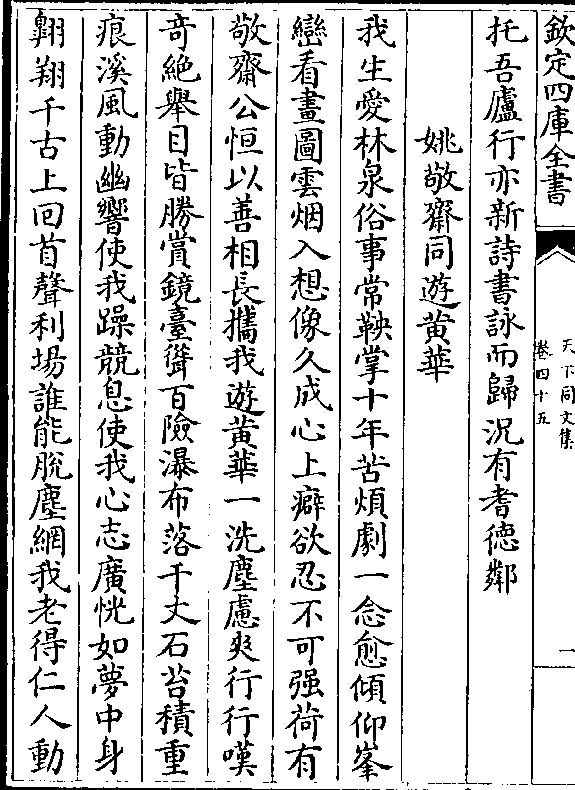 欽定四庫全書
天下同文集
卷四十五
一
托吾廬行亦新詩書詠而歸況有耆德鄰
姚敬齋同遊黄華
我生愛林泉俗事常鞅掌十年苦煩劇一念愈傾仰峯
巒看畫圖雲烟入想像久成心上癖欲忍不可强荷有
敬齋公恒以善相長攜我遊黄華一洗塵慮爽行行嘆
竒絶舉目皆勝賞鏡臺聳百險瀑布落千丈石苔積重
痕溪風動幽響使我躁競息使我心志廣恍如夢中身
翺翔千古上回首聲利場誰能脱塵網我老得仁人動